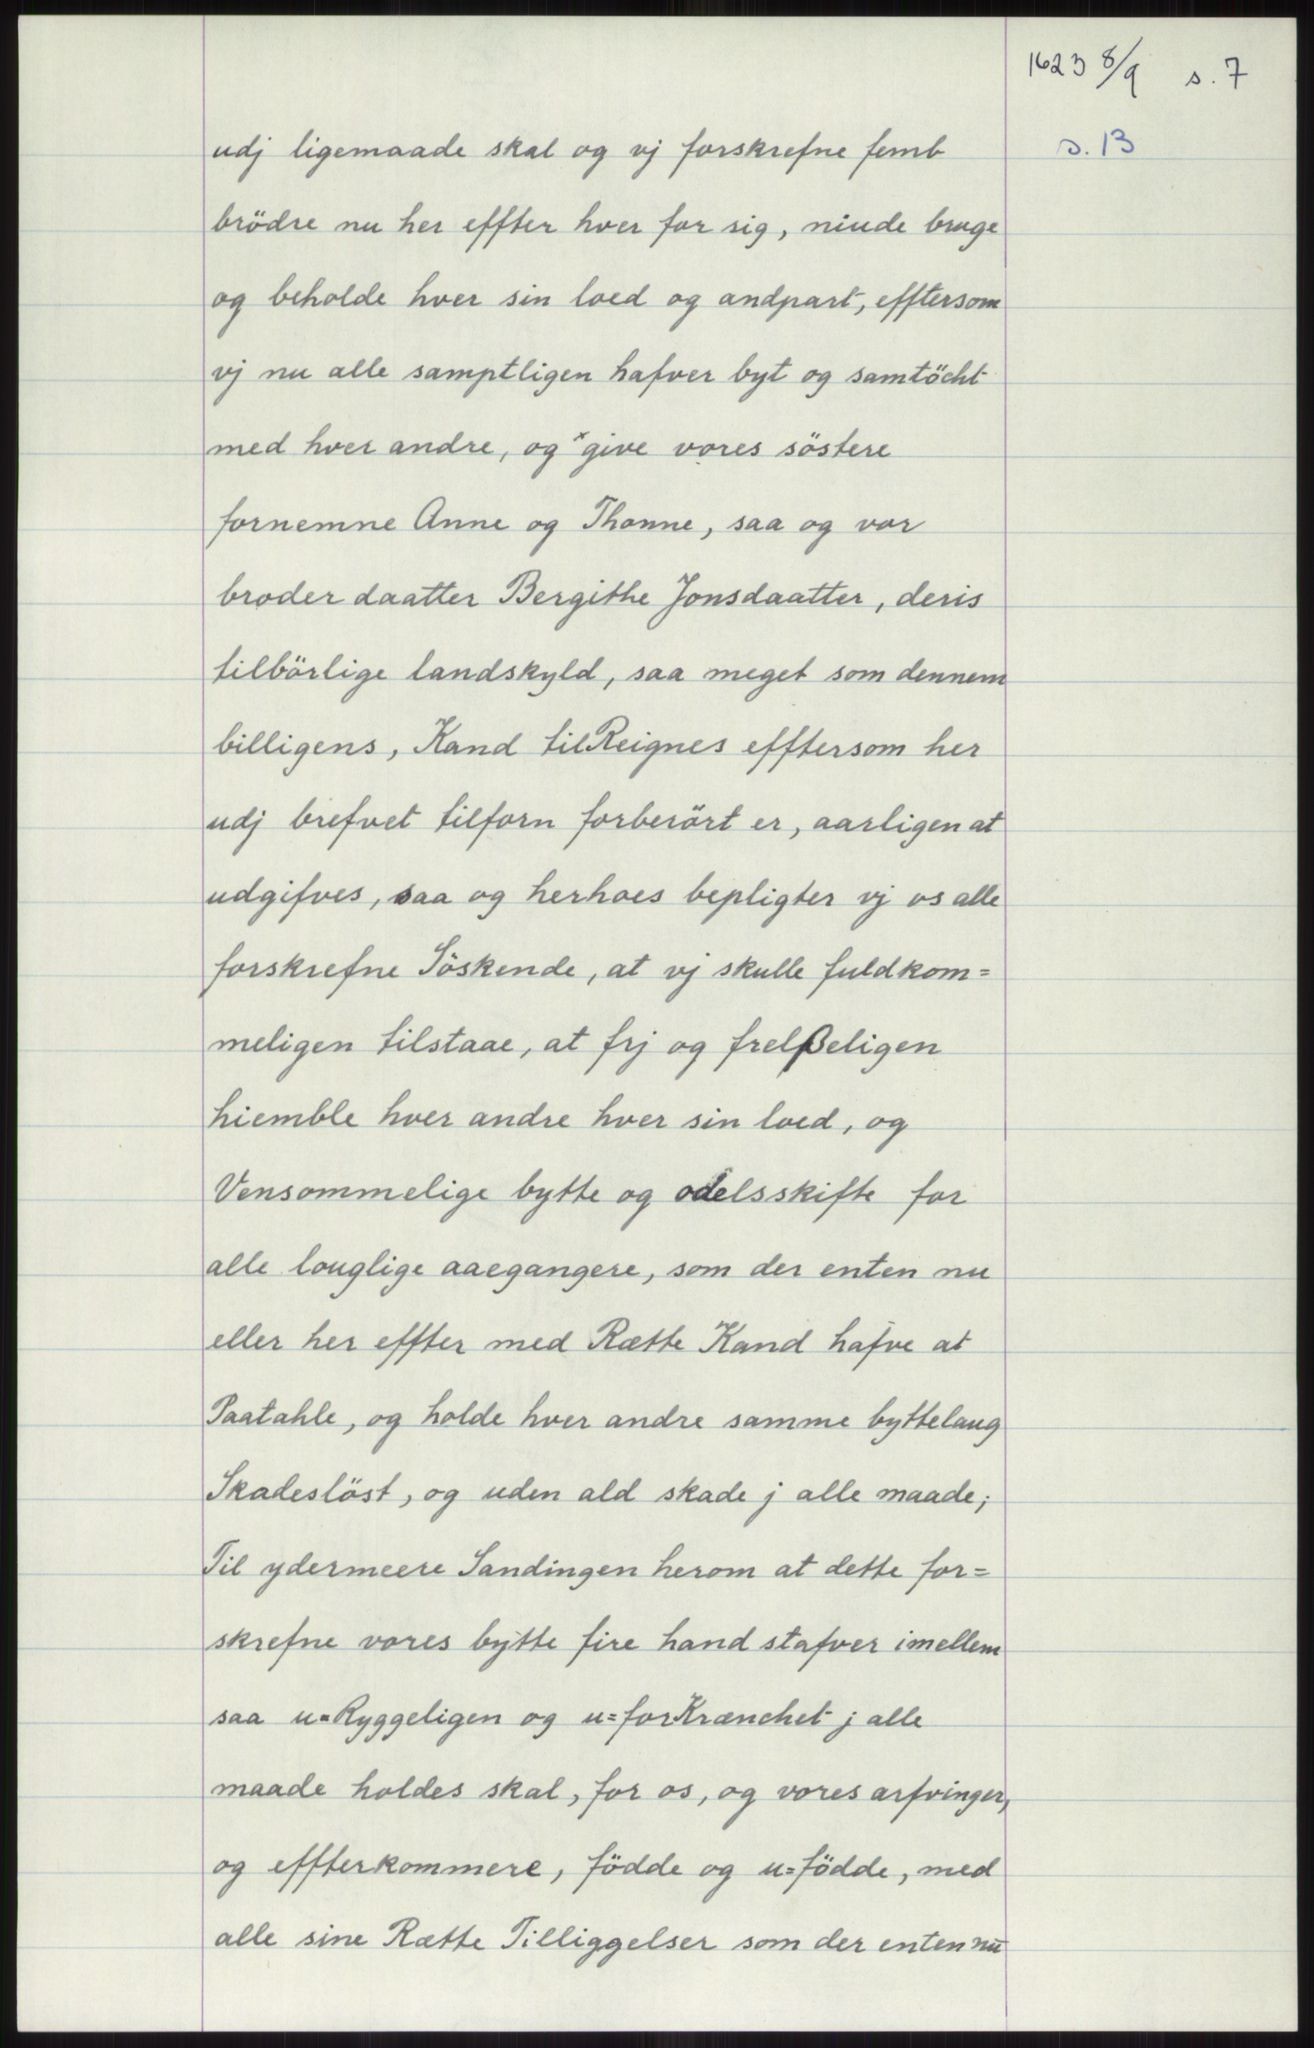 1623 8/9 s. 7
s. 13
udj ligemaade skal og vj forskrefne femb
brödre nu her effter hver for sig, niude bruge
og beholde hver sin loed og andpart, efftersom
vj nu alle samptligen hafver byt og samtöcht
med hver andre, og *give vores söstere
fornemne Anne og Thonne, saa og vor
broder daatter Bergithe Jonsdaatter, deris
tilbörlige landskyld, saa meget som dennem
billigens, Kand tilReignes efftersom her
udj brefvet tilforn forberört er, aarligen at
udgifves, saa og herhoes bepligter vj os alle
forskrefne Söskende, at vj skulle fuldkom=
meligen tilstaae, at frj og frelßeligen
hiemble hver andre hver sin loed, og
Vensommelige bytte og odelsskifte for
alle louglige aaegangere, som der enten nu
eller her effter med Rætte Kand hafve at
Paatahle, og holde hver andre samme byttelaug
Skadeslöst, og uden ald skade j alle maade;
Til ydermeere Sandingen herom at dette for=
skrefne vores bytte fire hand stafver imellem
saa u=Ryggeligen og u=forKrænchet j alle
maade holdes skal, for os, og vores arfvinger,
og effterkommere, födde og u=födde, med
alle sine Rætte Tilliggelser som der enten nu